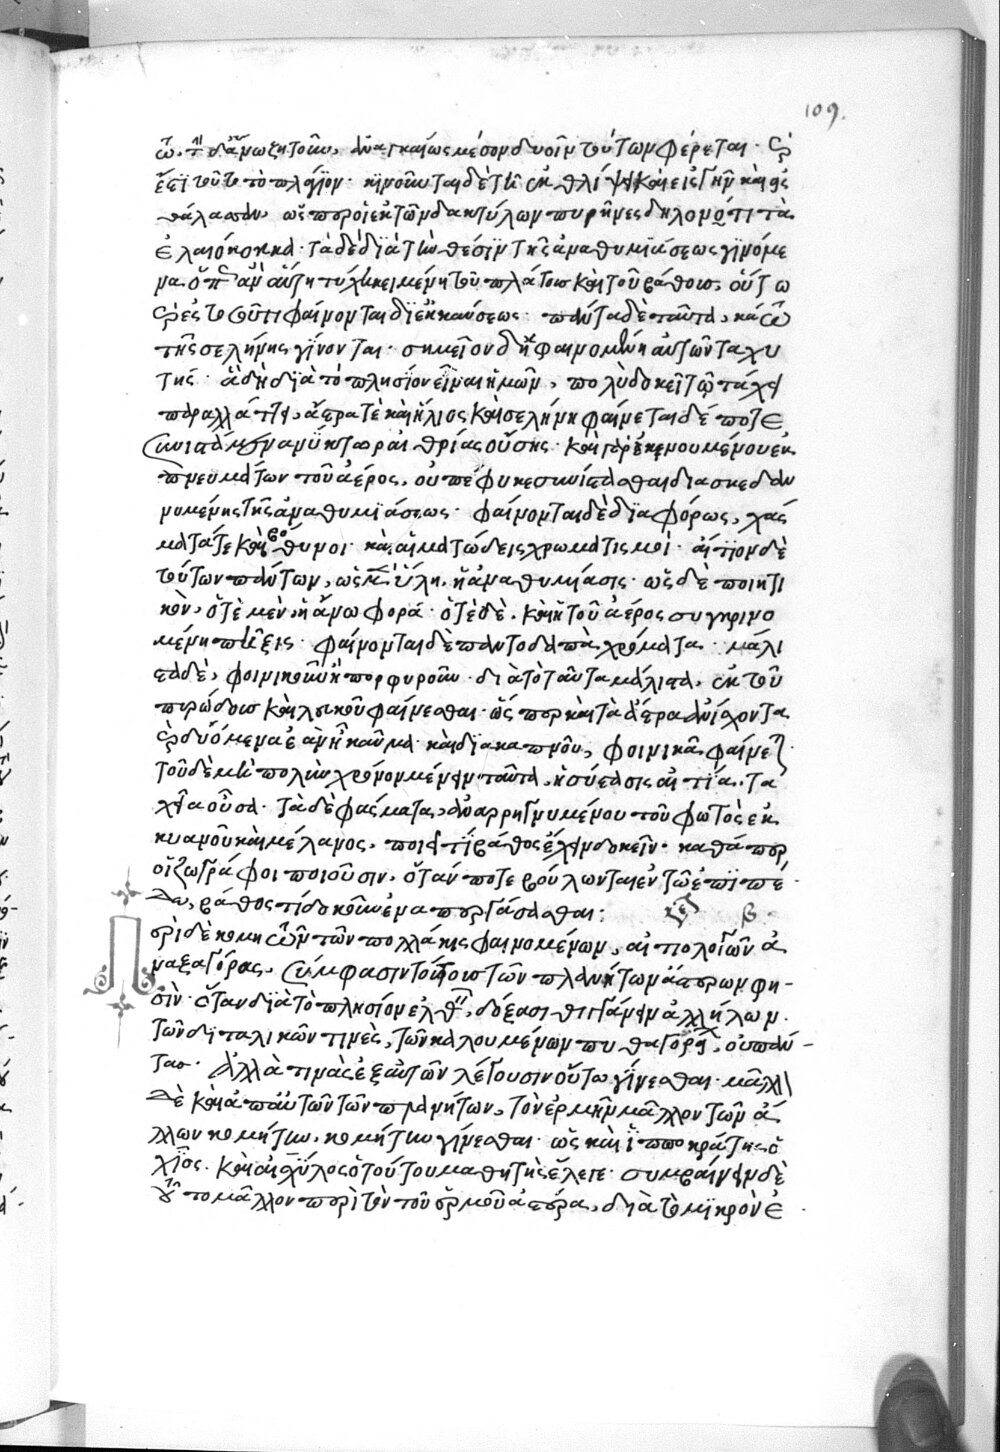 109.
ὦ. τῆ δ' ἄνω ζητοῦν, ἀναγκαίως μέσον δυοῖν τούτων φέρεται.
ἐστὶ τοῦτο τὸ πλάγιον. κινοῦνται δὲ τῇ ἐκθλίψει καὶ εἰς γῆν καὶ εἰς
θάλασσαν, ὥσπερ οἱ ἐκ τῶν δακτύλων πυρῆνες δηλονότι τὰ
ἐλαιόκοκκα. τὰ δὲ διὰ τὴν θέσιν τῆς ἀναθυμιάσεως γινόμε
να. ὅπως ἂν αὕτη τύχη κειμένη τοῦ πλάτους καὶ τοῦ βάθους, οὕτω
φαίνονται δι' ἐκκαύσεως. πάντα δὲ ταῦτα, κάτω
τῆς σελήνης γίνονται. σημεῖον δὴ φαινομένη αὐτῶν ταχυ
τής. ἃ δὴ διὰ τὸ πλησίον εἶναι ἡμῶν, πολὺ δοκεῖ τῶ τάχει
παραλλάττειν, ἄστρα τὲ καὶ ἥλιος καὶ σελήνη φαίνεται δέ ποτε
συνιστάμενα νύκτωρ αἰθρίας οὔσης. καὶ γὰρ κινουμένου ἐκ
πνευμάτων τοῦ ἀέρος, οὐ πέφυκε συνίστασθαι διασκεδαν
νυμένης τῆς ἀναθυμιάσεως. φαίνονται δὲ διαφόρως, χάσ
ματά τε καὶ βόθυνοι. καὶ αἱματώδεις χρωματισμοί. αἴτιον δὲ
τούτων πάντων, ὡς μὲν ὕλη, ἡ ἀναθυμίασις. ὡς δὲ ποιητι
κὸν, ὁτὲ μὲν, ἡ ἄνω φορά. ὁτὲ δὲ, καὶ ἡ τοῦ ἀέρος συγκρινο
μένη πῆξις. φαίνονται δὲ παντοδαπὰ χρώματα. μάλι
στα δὲ, φοινικοῦν ἢ πορφυροῦν. διὰ τὸ ταῦτα μάλιστα, ἐκ τοῦ
πυρώδους καὶ λευκοῦ φαίνεσθαι. ὥσπερ καὶ τὰ ἄστρα ἀνίσχοντα
δυόμενα ἐὰν ἦ καῦμα. καὶ διὰ καπνοῦ, φοινικᾶ φαίνεται.
τοῦ δὲ μὴ πολὺν χρόνον μένειν ταῦτα, ἡ σύστασις αἰτία. τα
χεῖα οὖσα. τὰ δὲ φάσματα, ἀναρρηγνυμένου τοῦ φωτὸς ἐκ
κυανοῦ καὶ μέλανος, ποιεῖ τι βάθος ἔχειν δοκεῖν. καθάπερ
οἱ ζωγράφοι ποιοῦσιν, ὅταν ποτε βούλωνται ἐν τῶ ἐπιπέ
δω, βάθος τί δοκοῦν ἐναπεργάσασθαι:
Περὶ δὲ κομητῶν τῶν πολλάκις φαινομένων, αἰτιολογῶν ἀ
ναξαγόρας, σύμφασιν τούτους τῶν πλανήτων ἀστέρων φη-
σὶν. ὅταν διὰ τὸ πλησίον ἐλθεῖν, δόξωσι θιγγάνειν ἀλλήλων.
τῶν δ' ἰταλικῶν τινὲς, τῶν καλουμένων πυθαγορείων, οὐ πάν-
τας. ἀλλὰ τινὰς ἐξ αὐτῶν λέγουσιν οὕτω γίνεσθαι. μᾶλλ
δὲ καὶ ἁπάντων τῶν πλανήτων, τὸν ἑρμῆν μᾶλλον τῶν ἄ
λλων κομήτην, κομήτην γίνεσθαι. ὡς καὶ ἱπποκράτης ὁ
χῖος. καὶ αἰσχύλος ὁ τούτου μαθητὴς ἔλεγε. συμβαίνειν δὲ
τοῦτο μᾶλλον περὶ τὸν τοῦ ἑρμοῦ ἀστέρα, διὰ τὸ μικρὸν ἐ